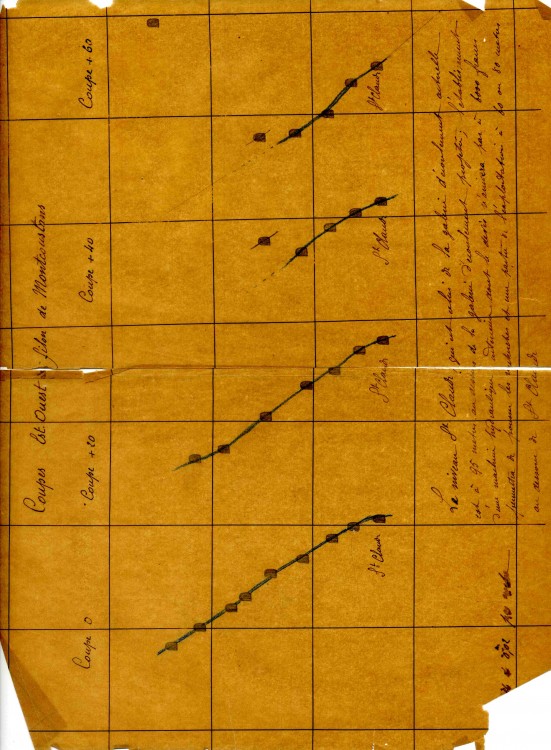 Coupes Est Ouest du filon de Montcoustans
Coupe 0
Coupe + 20
Coupe + 40
Coupe + 60
St Claude
St Claude
St Claude
St Claude
Le niveau St Claude, qui est celui de la galerie d'écoulement actuelle
est à 95 mètres au dessus de la galerie d'écoulement projetée; l'établissement
d'une machine hydraulique intérieure dont le devis s'élèvera pas à 6000 francs
permettra de pousser les recherches et une partie de l'exploitation à 60 ou 80 mètres
au dessous de St Claude